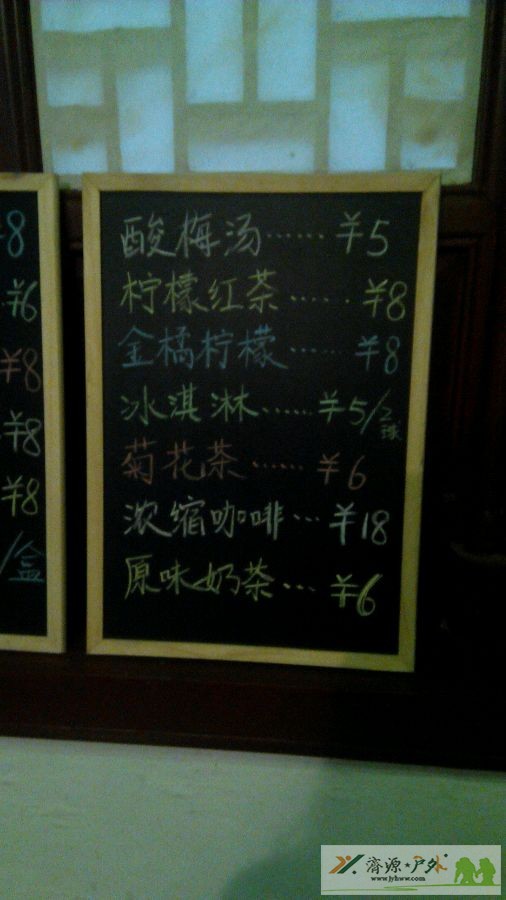 8
¥6
¥8
¥8
¥8
/盒
酸梅汤……¥5
柠檬红茶……¥8
金橘柠檬……¥8
冰淇淋……¥5/2球
菊花茶……¥6
浓缩咖啡…¥18
原味奶茶…¥6
济源★户外
www.jyhww.com